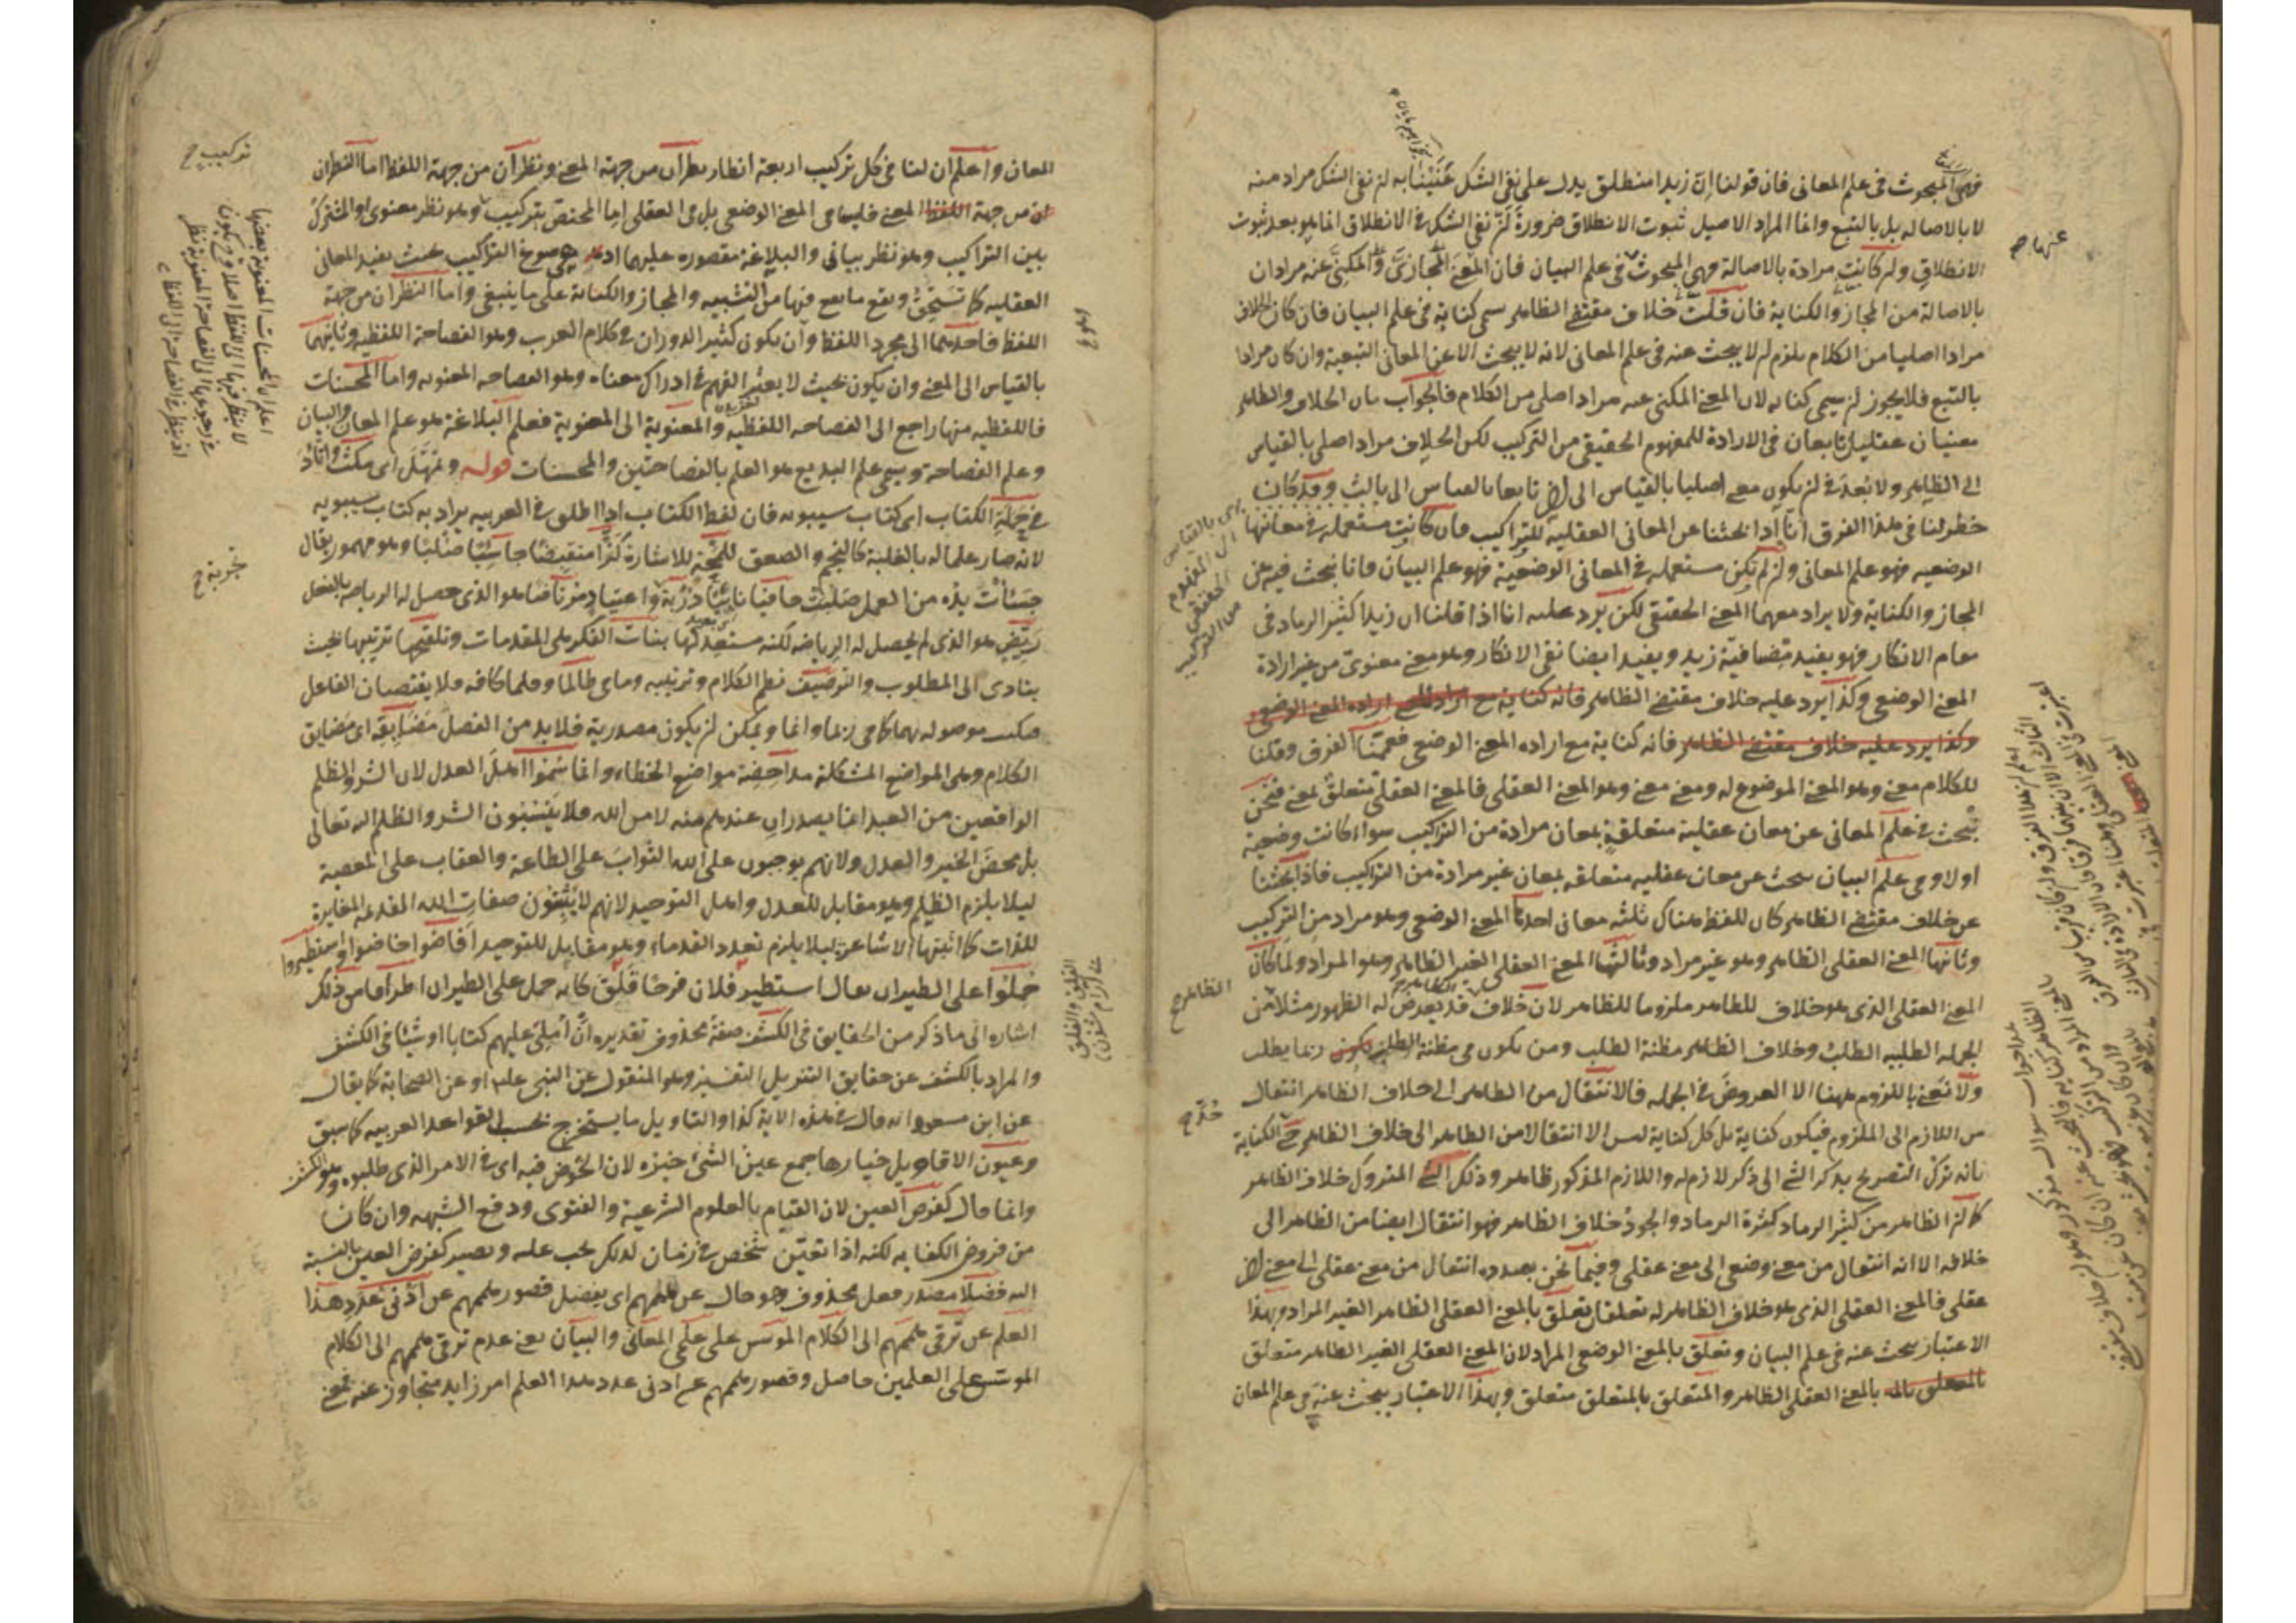 فهي المبحوث في علم المعاني فان قولنا ان زيدا منطلق يدل على نفي الشك عنينا به ان نفي الشك مراد منه
لا بالاصالة بل بالتبع وانما المراد الاصيل ثبوت الانطلاق ضرورة ان نفي الشك في الانطلاق انما هو بعد ثبوت
الانطلاق وان كانت مرادة بالاصالة فهي المبحوث في علم البيان فان المعنى المجازي والمكني عنه مرادان
بالاصالة من المجاز والكناية فان قلت خلاف مقتضى الظاهر سمي كناية في علم البيان فان كان الخلاف
مرادا اصليا من الكلام يلزم ان لا يبحث عنه في علم المعاني لانه لا يبحث الا عن المعاني التبعية وان كان مرادا
بالتبع فلا يجوز ان يسمى كناية لان المعنى المكني عنه مراد اصلي من الكلام فالجواب بان الخلاف والظاهر
معنيان عقليان تابعان في الارادة للمفهوم الحقيقي من التركيب لكن الخلاف مراد اصلي بالقياس
الى الظاهر ولا بعد في ان يكون معنى اصليا بالقياس الى اخر تابعا بالقياس الى ثالث وقد كان
خطر لنا في هذا الفرق انا اذا بحثنا عن المعاني العقلية للتراكيب فان كانت مستعملة في معانيها
الوضعيه فهو علم المعاني وان لم يكن مستعمله في المعاني الوضعية فهو علم البيان فانا نبحث فيه عن
المجاز والكناية ولا يراد معهما المعنى الحقيقي لكن يرد عليه انا اذا قلنا ان زيدا كثير الرماد في
مقام الانكار فهو يفيد مضيافية زيد ويفيد ايضا نفي الانكار وهو معنى معنوي من غير ارادة
المعنى الوضعي وكذا يرد عليه خلاف مقتضى الظاهر فانه كناية مع ارادة المعنى الوضعي
وكذا يرد عليه خلاف مقتضى الظاهر فانه كناية مع اراده المعنى الوضعي فعممنا الفرق وقلنا
للكلام معنى وهو المعنى الموضوع له ومعنى معنى وهو المعنى العقلي فالمعنى العقلي متعلق لمعنى فنحن
نبحث في علم المعاني عن معان عقلية متعلقة بمعان مرادة من التراكيب سواء كانت وضعية
او لا وفي علم البيان نبحث عن معان عقليه متعلقه بمعان غير مرادة من التراكيب فاذا بحثنا
عن خلاف مقتضى الظاهر كان للفظ هناك ثلثه معاني احدها المعنى الوضعي وهو مراد من التركيب
وثانيها المعنى العقلي الظاهر وهو غير مراد وثالثها المعنى العقلي الغير الظاهر وهو المراد ولما كان
المعنى العقلي الذي هو خلاف الظاهر ملزوما للظاهر لان خلاف الظاهر قد يعرض له الظهور مثلا من
الجمله الطلبيه الطلب وخلاف الظاهر مظنة الطلب ومن يكون في مظنة الطلب ربما يطلب
ولا نعني باللزوم ههنا الا العروض في الجمله فالانتقال من الظاهر الى خلاف الظاهر انتقال
من اللازم الى الملزوم فيكون كناية بل كل كناية ليس الا انتقالا من الظاهر الى خلاف الظاهر حد الكناية
بانه ترك التصريح بذكر الشيء الى ذكر لازمه واللازم المذكور ظاهر وذلك الشيء المتروك خلاف الظاهر
كما ان الظاهر من كثير الرماد كثرة الرماد والجود خلاف الظاهر فهو انتقال ايضا من الظاهر الى
خلافه الا انه انتقال من معنى وضعي الى معنى عقلي وفيما نحن بصدده انتقال من معنى عقلي الى معنى اخر
عقلي فالمعنى العقلي الذي هو خلاف الظاهر له تعلقان تعلق بالمعنى العقلي الظاهر الغير المراد وبهذا
الاعتبار يبحث عنه في علم البيان وتعلق بالمعنى الوضعي المراد لان المعنى العقلي الغير الظاهر متعلق
بالمعنى العقلي الظاهر والمتعلق بالمتعلق متعلق وبهذا الاعتبار يبحث عنه في علم المعان
عنها صح
يرى بالقياس
الى المفهوم
الحقيقي
من التركيب
الظاهر ح
حد ح
المعان واعلم ان لنا في كل تركيب اربعة انظار نظران من جهة المعنى ونظران من جهة اللفظ اما النظران
من جهة المعنى فليسا في المعنى الوضعي بل في العقلي اما المختص بتركيب وهو نظر معنوي او المشترك
بين التراكيب وهو نظر بياني والبلاغة مقصوره عليهما اذ هي صوغ التراكيب بحيث يفيد المعاني
العقليه كما تستحق ويقع ما يقع فيها من التشبيه والمجاز والكناية على ما ينبغي واما النظران من جهة
اللفظ فاحدهما الى مجرد اللفظ وان يكون كثير الدوران في كلام العرب وهو الفصاحة اللفظيه وثانيهما
بالقياس الى المعنى وان يكون بحيث لا يعثر الفهم في ادراك معناه وهو الفصاحه المعنويه واما المحسنات
فاللفظيه منها راجع الى الفصاحه اللفظيه والمعنوية الى المعنوية فعلم البلاغة هو علم المعان والبيان
وعلم الفصاحة ويسمى علم البديع هو العلم بالفصاحتين والمحسنات قوله وتمهل اى مكث واتأد
في حملة الكتاب اى كتاب سيبويه فان لفظ الكتاب اذا اطلق في العربيه يراد به كتاب سيبويه
لانه صار علما له بالغلبة كالنجم والصعق للمحة للاشارة كزا منقبضا جاسئا صلبا وهو مهموز يقال
جسأت يده من العمل صلبت جافيا نابيا دربة واعتياد مرتاضا هو الذي حصل له الرياضه بالفعل
ريض هو الذي لم يحصل له الرياضه لكنه مستعد لها بنات الفكر هى المقدمات وتلقيحها ترتيبها بحيث
يتادى الى المطلوب والترصيف نظم الكلام وترتيبه وما فى طالما وقلما كافه فلا يقتضيان الفاعل
فيكتب موصوله بهما كما في ربما وانما ويمكن ان يكون مصدرية فلا بد من الفصل مضايقه اى مضايق
الكلام وهي المواضع المشكلة مداحضه مواضع الخطاء وانما سموا اهل العدل لان الشر والظلم
الواقعين من العبد انما يصدران عندهم منه لا من الله فلا ينسبون الشر والظلم اليه تعالى
بل محض الخير والعدل ولانهم يوجبون على الله الثواب على الطاعة والعقاب على المعصية
ليلا يلزم الظلم وهو مقابل للعدل واهل التوحيد لانهم لا يثبتون صفات الله القديمه المغايرة
للذات كما اثبتها الاشاعرة ليلا يلزم تعدد القدماء وهو مقابل للتوحيد افاضوا خاضوا واستطيروا
حملوا على الطيران يقال استطير فلان فرحا قلق كانه حمل على الطيران اطرافا من ذلك
اشاره الى ما ذكر من الحقايق في الكشف صفة محذوف تقديره ان املي عليهم كتابا او شيئا في الكشف
والمراد بالكشف عن حقايق التنزيل التفسير وهو المنقول عن النبي عليه او عن الصحابة كما يقال
عن ابن مسعود انه قال في هذه الاية كذا والتاويل ما يستخرج بحسب القواعد العربيه كما سبق
وعيون الاقاويل خيارها جمع عين الشئ خيره لان الخوض فيه اى في الامر الذي طلبوه وهو الكشف
وانما قال كفرض العين لان القيام بالعلوم الشرعية والفتوى ودفع الشبهه وان كان
من فروض الكفايه لكنه اذا تعين شخص في زمان لذلك يجب عليه ويصير كفرض العين بالنسبة
اليه فضلا مصدر فعل محذوف وهو حال عن هممهم اى يفضل قصور هممهم عن ادنى عدد هذا
العلم عن ترقي هممهم الى الكلام الموسس على علمي المعاني والبيان يعني عدم ترقي هممهم الى الكلام
الموسس على العلمين حاصل وقصور هممهم عن ادنى عدد هذا العلم امر زايد متجاوز عنه بمعنى
تركيب ح
اعلم ان المحسنات المعنوية بعضها
لا ينظر فيها الى اللفظ اصلا فح يكون
في رجوعها الى الفصاحة المعنوية نظر
اذ ينظر في الفصاحة الى اللفظ
القلق والفلق